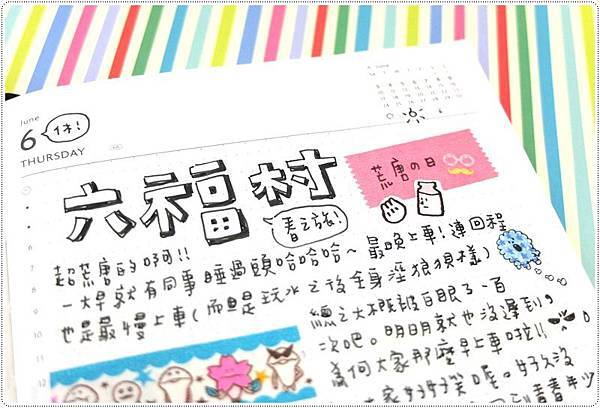 June
6
休!
THURSDAY
六福村
春之旅!
荒唐の日
超荒唐的啊!!
一大早就有同事睡過頭哈哈哈~
也是最慢上車(而且是玩水之後全身溼狼狽樣)
最晚上車!連回程
總之大概被白眼了一百
次吧。明明就也沒遲到,
為何大家那麼早上車啦!!
大家好好笑喔。好久沒